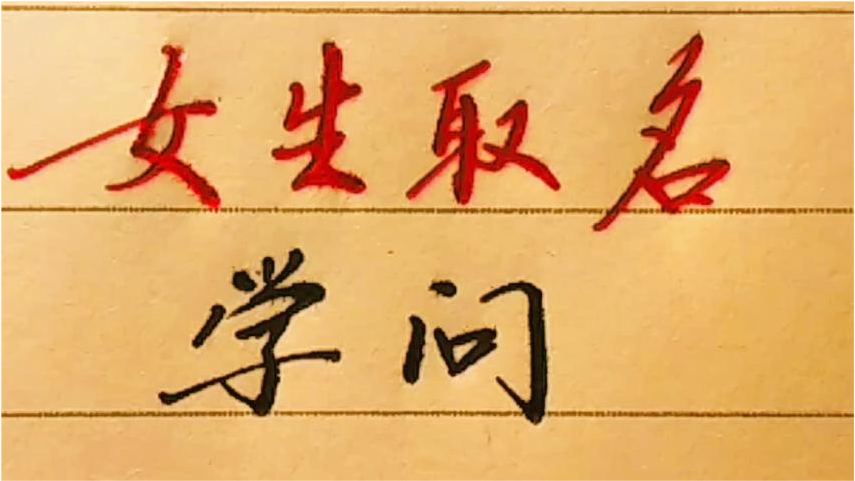 女生取名
学问